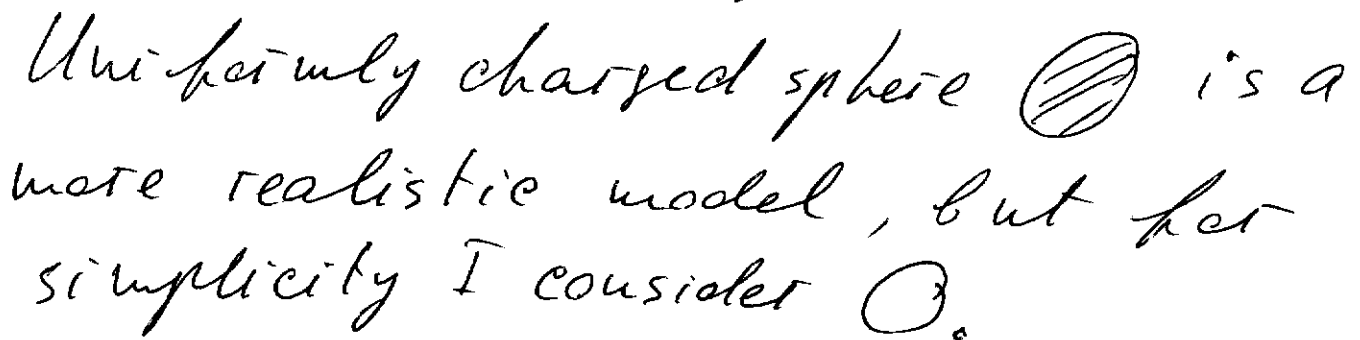 Uniformly charged sphere is a
more realistic model, but for
simplicity I consider .